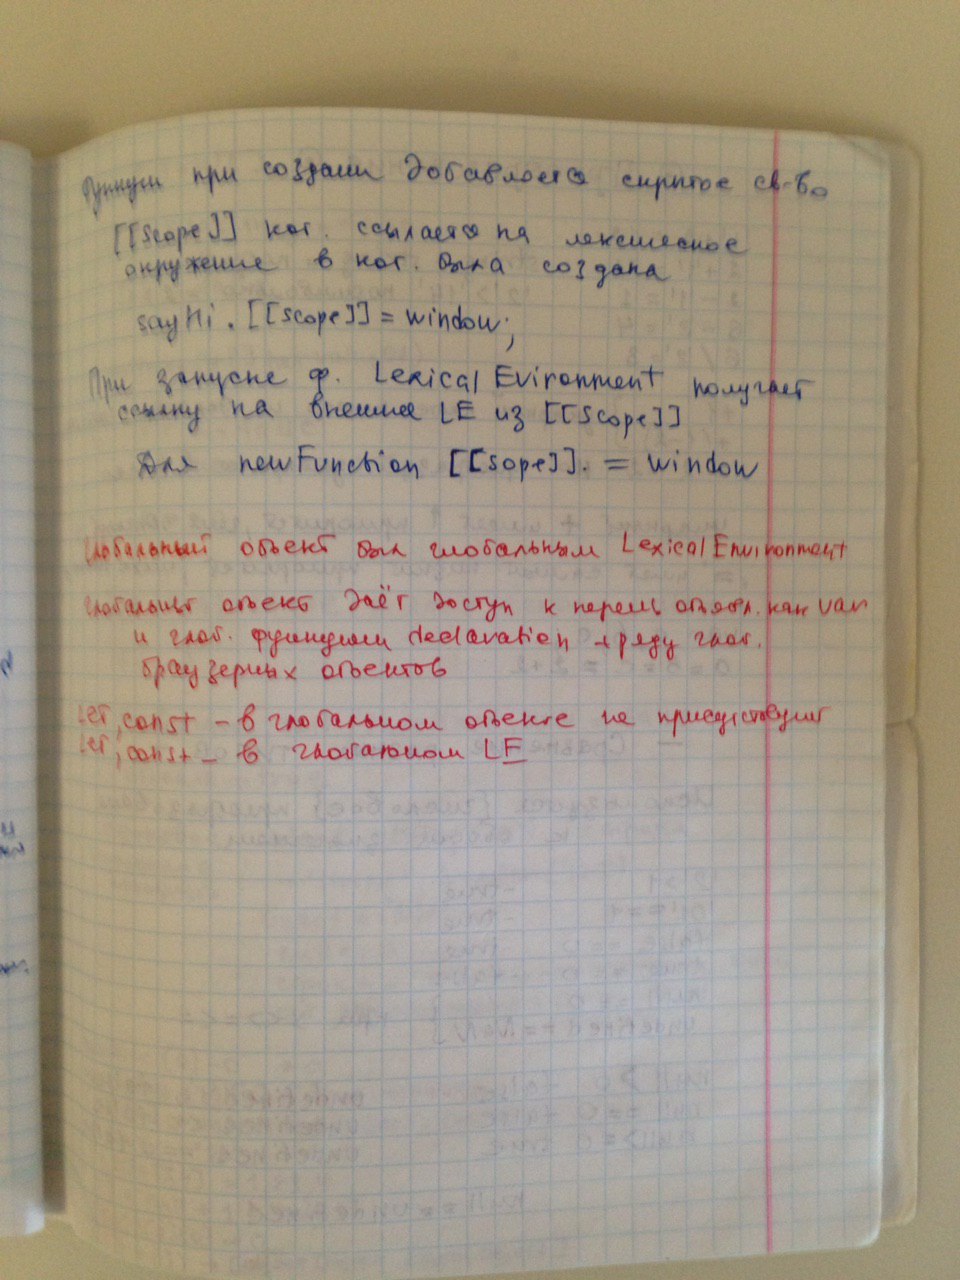 Функции при создании добавляется скрытое св-во
[[Scope]] кот. ссылается на лексическое
окружение в кот. была создана
sayHi.[[Scope]] = window;
При запуске ф. Lexical Evironment получает
ссылку на внешнее LE из [[Scope]]
Для newFunction [[Sope]]. = window
глобальный объект был глобальным Lexical Environment
глобальный объект даёт доступ к перем. объявл. как var
и глоб. функциям declaration + ряду глоб.
браузерных объектов
Let, const - в глобальном объекте не присутствуют
let, const - в глобальном LE